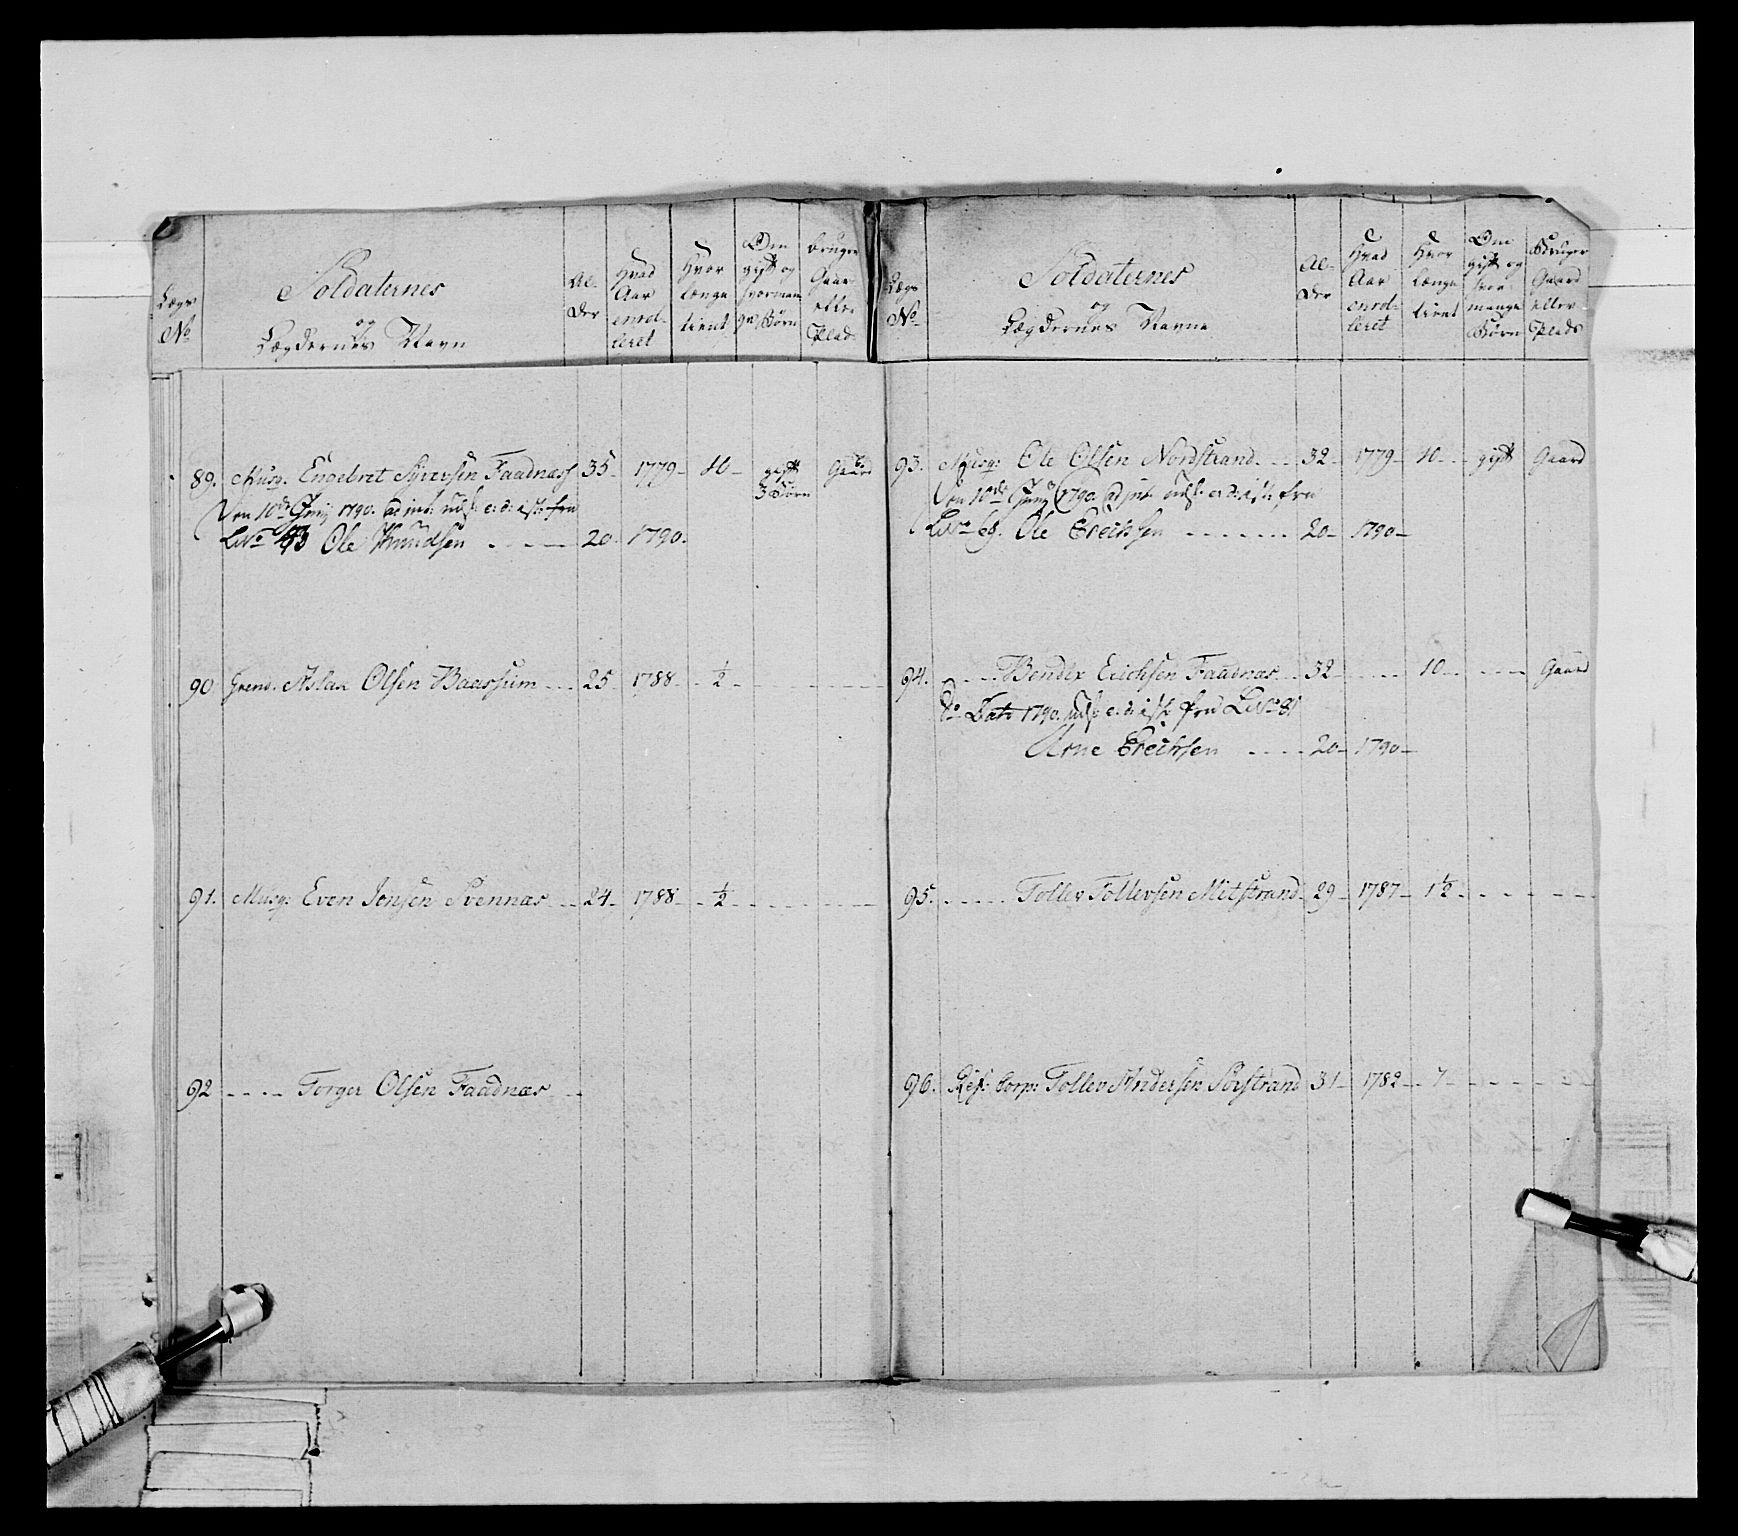 Lægs
No
Soldaternes
og
Lægdernes Navn
Al-
der
Hvad
Aar
enrol-
leret
Hvor
længe
tient
Om
gift og
hvormange
Børn
bruger
Gaar
eller
Plads
89. Musq: Engebret Syversen Faadnæss 35 1779 10 gift Gaard
3 Børn
Den 10de Junij 1790. fra
Ole Knudsen 20 1790.
90 Grens. Aslak Olsen Baassum 25 1788 ½
91. Musq: Even Jensen Svennæs 24 1788 ½
92 Torger Olsen Faadnæs
Lægs
No
Soldaternes
og
Lægdernes Navne
Al-
der
Hvad
Aar
enrol-
leret
Hvor
længe
tient
Om
gift og
hvor
mange
Børn
Bruger
Gaard
eller
Plads
93. Musq: Ole Olsen Nordstrand 32 1779 10 gift Gaard
Den 10de Junij 1790. fra
Ole Erichsen 20 1790
94. Bendix Erichsen Faadnæs 32 10 Gaard
do Dato 1790. fra
Arne Erichsen 20 1790
95. Tollev Tollevsen Mitstrand 29 1787 1½
96. Ref: Corp: Tollev Andersen Sörstrand 31 1782 7